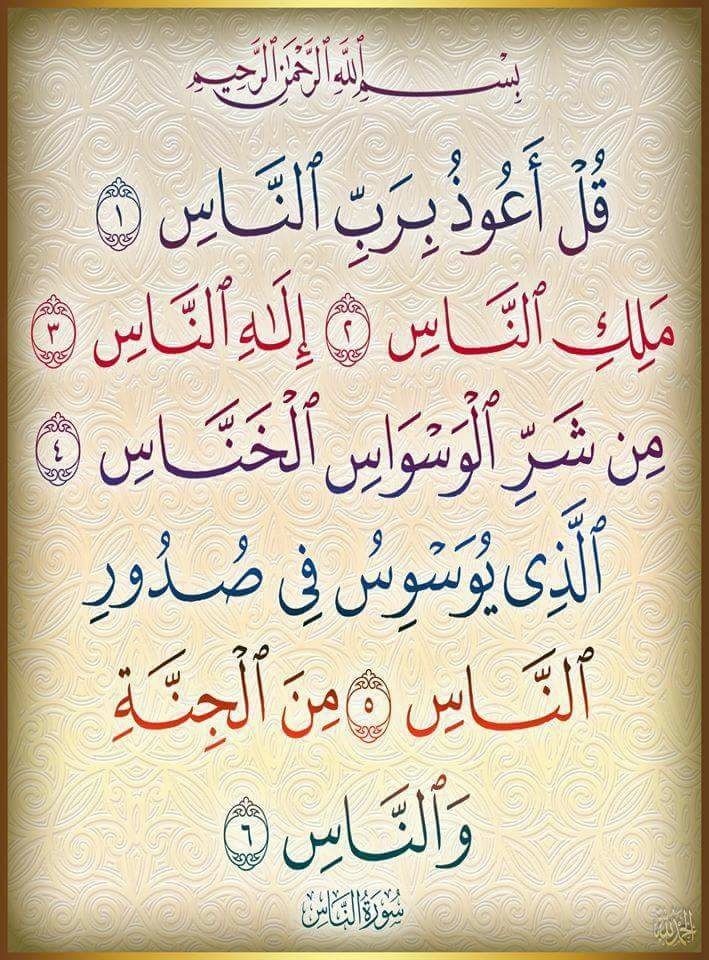 بِسْمِ ٱللَّهِ ٱلرَّحْمَٰنِ ٱلرَّحِيمِ
قُلْ أَعُوذُ بِرَبِّ ٱلنَّاسِ ١
مَلِكِ ٱلنَّاسِ ٢ إِلَٰهِ ٱلنَّاسِ ٣
مِن شَرِّ ٱلْوَسْوَاسِ ٱلْخَنَّاسِ ٤
ٱلَّذِى يُوَسْوِسُ فِى صُدُورِ
ٱلنَّاسِ ٥ مِنَ ٱلْجِنَّةِ
وَٱلنَّاسِ ٦
سُورَةُ النَّاسِ
الحمد لله